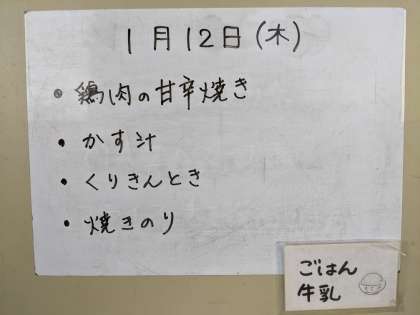 1月12日(木)
• 鶏肉の甘辛焼き
• かす汁
• くりきんとき
• 焼きのり
ごはん
牛乳